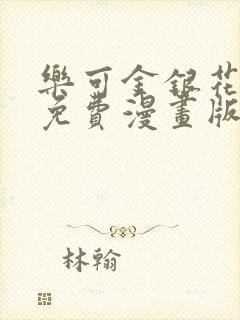 樂可金銀花
免費漫畫版
林翰